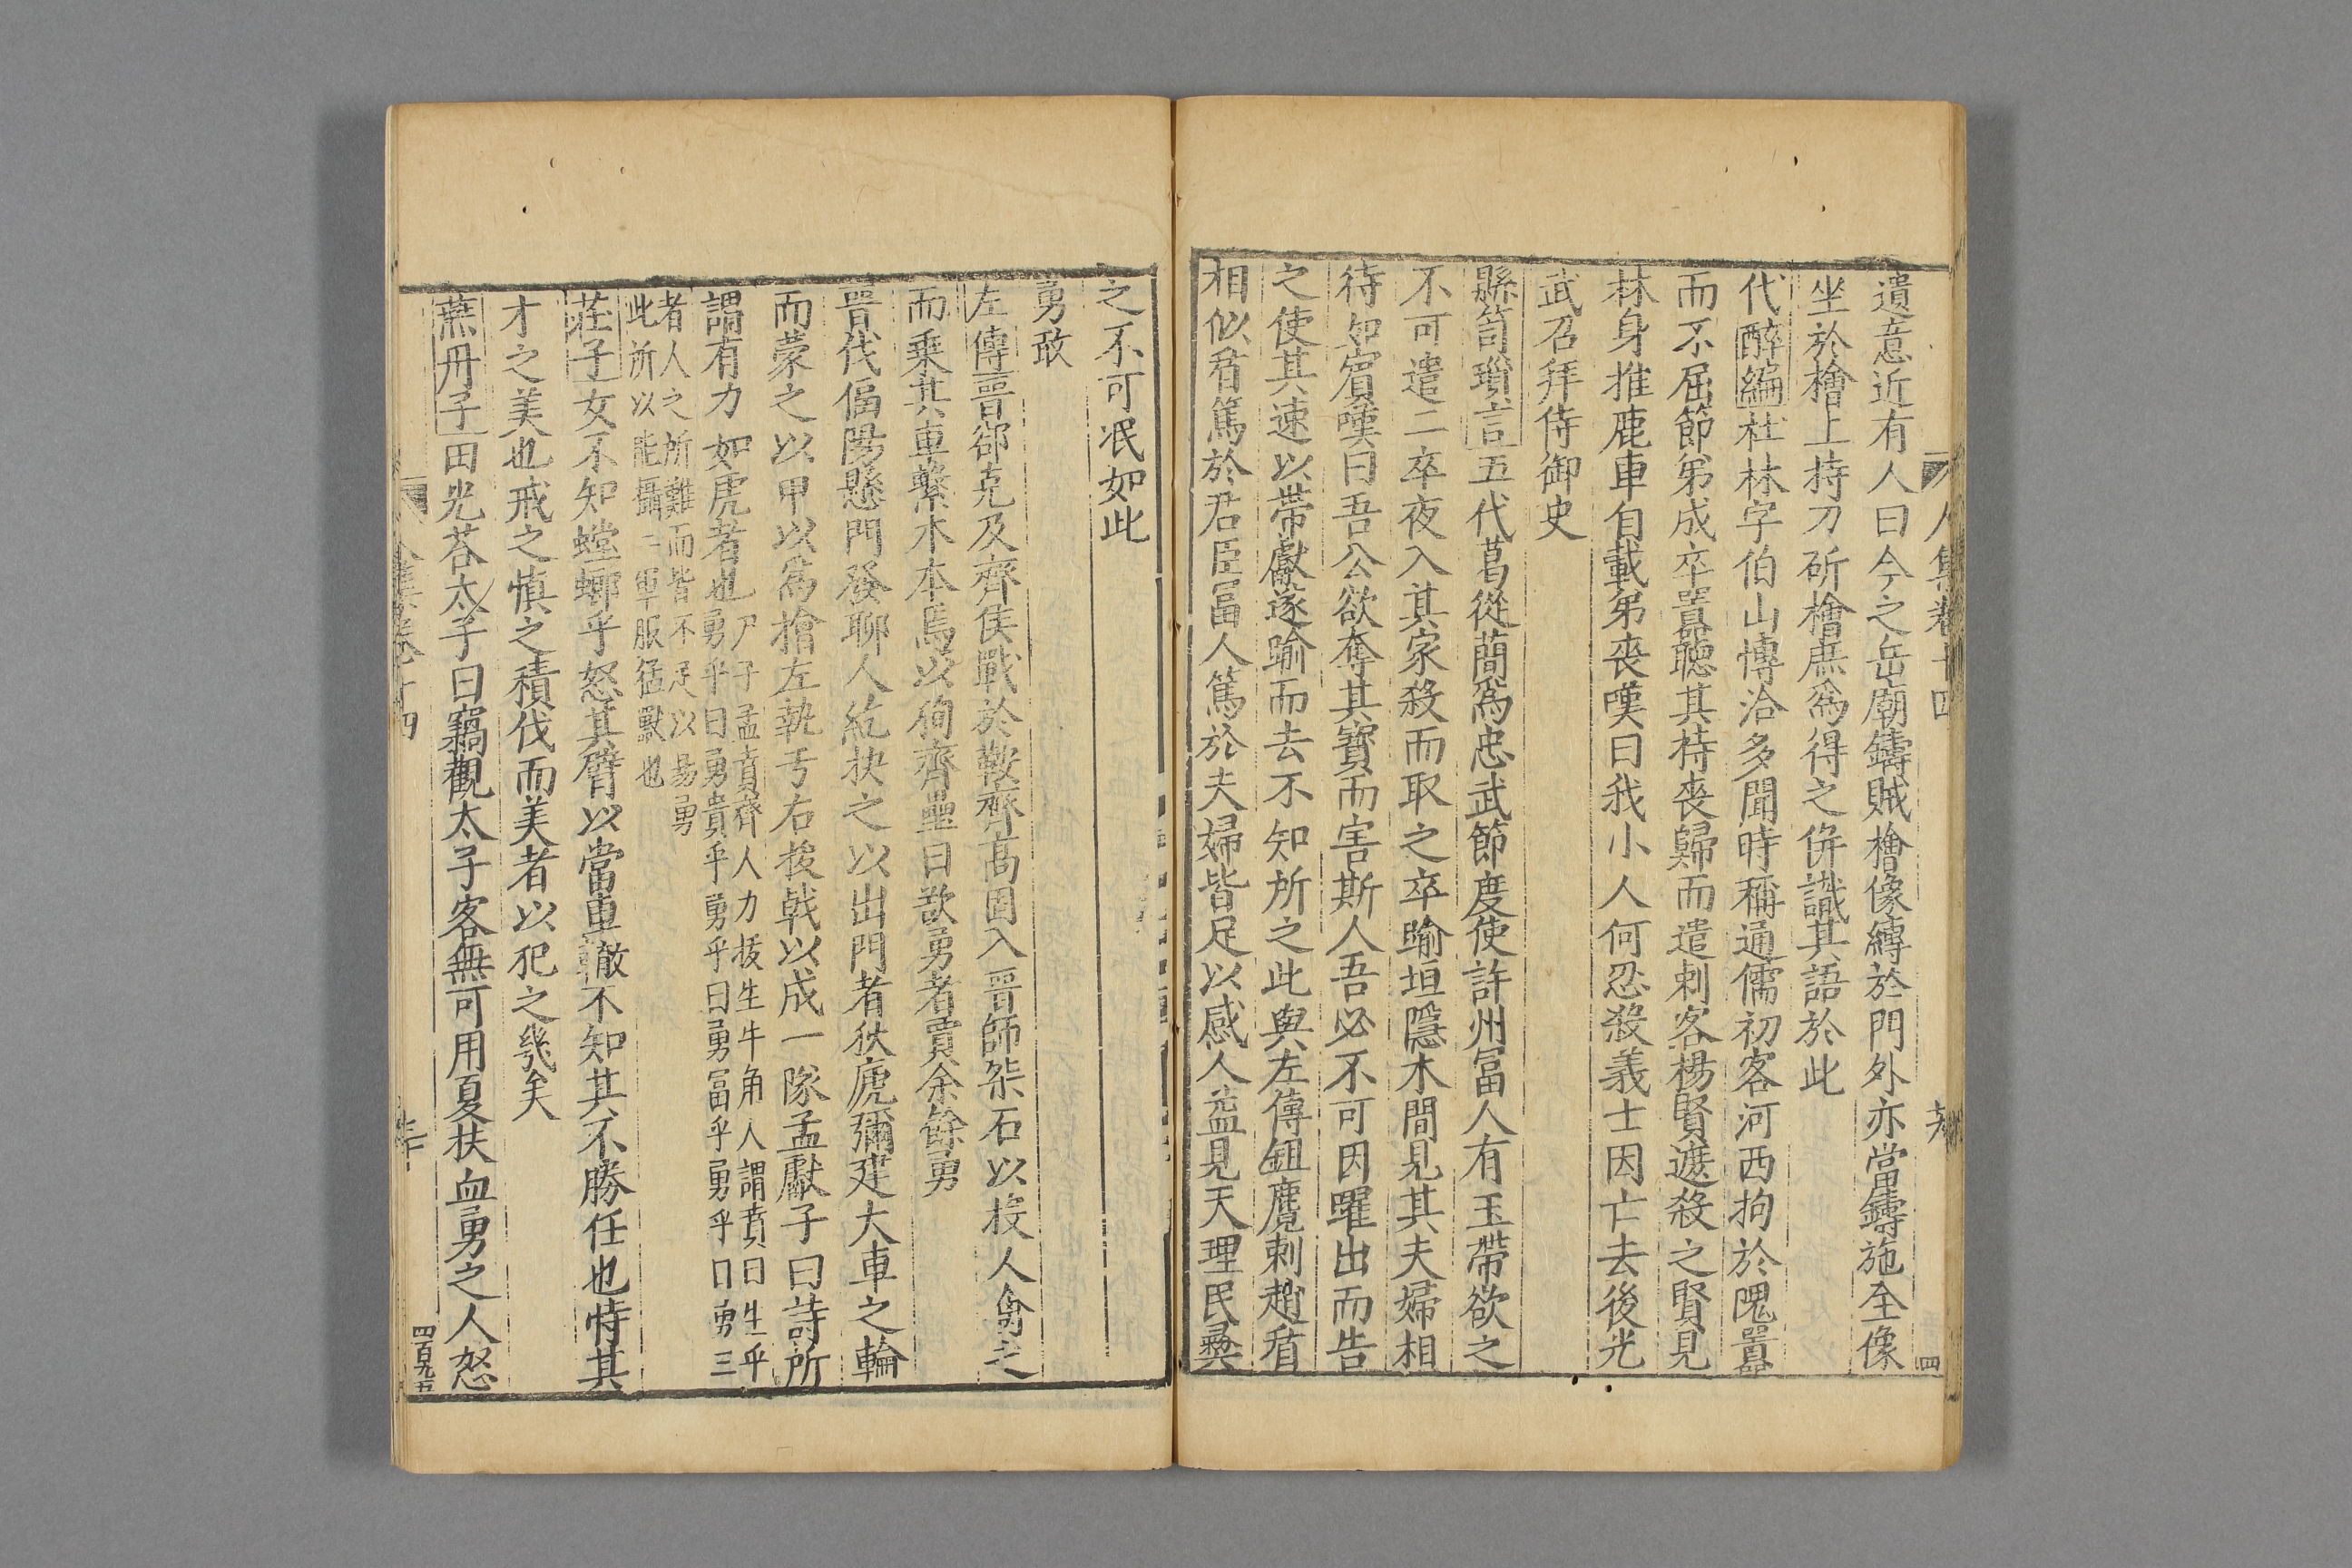 遺意近有人曰今之岳廟鑄賊檜像縛於門外亦當鑄施全像
坐於檜上持刀斫檜庶爲得之併識其語於此
代醉編杜林字伯山博洽多聞時稱通儒初客河西拘於隗囂
而不屈節弟成卒囂聽其持喪歸而遣刺客楊賢遮殺之賢見
林身推鹿車自載弟喪嘆曰我小人何忍殺義士因亡去後光
武召拜侍御史
縣笥瑣言五代葛從蕳爲忠武節度使許州冨人有玉帶欲之
不可遣二卒夜入其家殺而取之卒踰垣隱木間見其夫婦相
待如賓嘆曰吾公欲奪其寶而害斯人吾必不可因躍出而告
之使其速以帶獻遂踰而去不知所之此與左傳鉏麑刺趙盾
相似盾篤於君臣冨人篤於夫婦皆足以感人益見天理民彝
之不可泯如此
勇敢
左傳晉郤克及齊侯戰於鞍齊髙固入晉師桀石以投人禽之
而乗其車繫木本焉以徇齊壘曰欲勇者賈余餘勇
晉伐偪陽懸門發聊人紇抉之以出門者狄虒彌建大車之輪
而蒙之以甲以爲櫓左執丂右拔戟以成一隊孟獻子曰詩所
謂有力如虎者也尸子孟賁齊人力拔生牛角人謂賁曰生乎
勇乎曰勇貴乎勇乎曰勇冨乎勇乎曰勇三
者人之所難而皆不足以昜勇
此所以能攝三軍服猛獸也
莊子女不知螳蜋乎怒其臂以當車轍不知其不勝任也恃其
才之美也戒之慎之積伐而美者以犯之幾矣
燕丹子田光荅太子曰竊觀太子客無可用夏扶血勇之人怒
四百九五